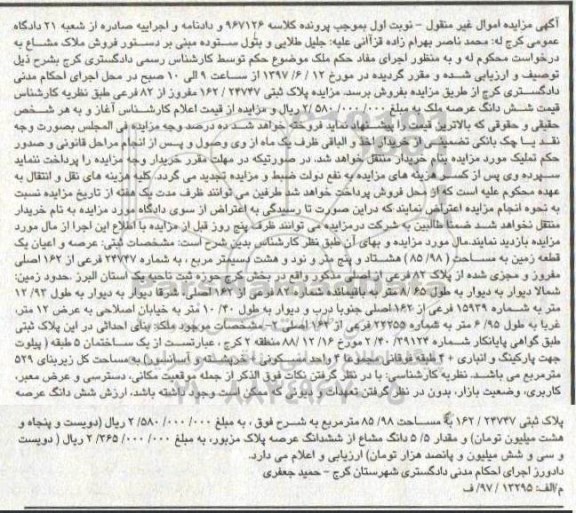 آگهی مزایده اموال غیر منقول - نوبت اول بموجب پرونده کلاسه ۹۶۷۱۲۶ و دادنامه و اجراییه صادره از شعبه ۲۱ دادگاه
عمومی کرج له: محمد ناصر بهرام زاده قزآانی علیه: جلیل طلایی و بتول ستوده مبنی بر دستور فروش ملاک مشاع به
درخواست محکوم له و به منظور اجرای مفاد حکم ملک موضوع حکم توسط کارشناس رسمی دادگستری کرج بشرح ذیل
توصیف و ارزیابی شده و مقرر گردیده در مورخ ۱۲ / ۶ / ۱۳۹۷ از ساعت ۹ الی ۱۰ صبح در محل اجرای احکام مدنی
دادگستری کرج از طریق مزایده بفروش برسد. مزایده پلاک ثبتی ۱۶۲ / ۲۴۷۴۷ مفروز از ۸۲ فرعی طبق نظریه کارشناس
قیمت شش دانگ عرصه ملک به مبلغ ۰۰۰/ ۰۰۰/ ۵۸۰ /۲ ریال و مزایده از قیمت اعلام کارشناس آغاز و به هر شخص
حقیقی و حقوقی که بالاترین قیمت را پیشنهاد نماید فروخته خواهد شد ده درصد وجه مزایده فی المجلس بصورت وجه
نقد یا چک بانکی تضمینی از خریدار اخذ و الباقی ظرف یک ماه از وی وصول و پس از انجام مراحل قانونی و صدور
حکم تملیک مورد مزایده بنام خریدار منتقل خواهد شد. در صورتیکه در مهلت مقرر خریدار وجه مزایده را پرداخت ننماید
سپرده وی پس از کسر هزینه های مزایده به نفع دولت ضبط و مزایده تجدید می گردد. کلیه هزینه های نقل و انتقال به
عهده محکوم علیه است که از محل فروش پرداخت خواهد شد طرفین می توانند ظرف مدت یک هفته از تاریخ مزایده نسبت
به نحوه انجام مزایده اعتراض نمایند که دراین صورت تا رسیدگی به اعتراض از سوی دادگاه مورد مزایده به نام خریدار
منتقل نخواهد شد ضمنا طالبین به شرکت درمزایده می توانند ظرف پنج روز قبل از مزایده با اطلاع این اجرا از مال مورد
مزایده بازدید نمایند.مال مورد مزایده و بهای آن طبق نظر کارشناس بدین شرح است: مشخصات ثبتی: عرصه و اعیان یک
قطعه زمین به مساحت ( ۹۸/ ۸۵ ) هشتاد و پنج متر و نود و هشت دسیمتر مربع ، به شماره ۲۴۷۴۷ فرعی از ۱۶۲ اصلی
مفروز و مجزی شده از پلاک ۸۲ فرعی از اصلی مذکور واقع در بخش کرج حوزه ثبت ناحیه یک استان البرز .حدود زمین:
شمالا دیوار به دیوار به طول ۶۵/ ۸ متر به باقیمانده شماره ۸۲ فرعی از ۱۶۲ اصلی، شرقا دیوار به دیوار به طول ۹۳/ ۱۲
متر به شماره ۱۵۹۳۹ فرعی از ۱۶۲ اصلی جنوبا درب و دیوار به طول ۴۰/ ۱۰ متر به خیابان اصلاحی به عرض ۱۲ متر،
غربا به طول ۹۵/ ۶ متر به شماره ۲۴۲۵۵ فرعی از ۱۶۲ اصلی ۲- مشخصات موجود ملک: بنای احداثی در این پلاک ثبتی
طبق گواهی پایانکار شماره ۳۹۱۲۴/ ۴۰/ ۲ مورخ ۱۶/ ۱۲/ ۸۸ منطقه ۲ کرج ، عبارتست از یک ساختمان ۵ طبقه ( پیلوت
جهت پارکینگ و انباری + ۴ طبقه فوقانی جمعا ۴ واحد مسکونی + خرپشته و آسانسور) به مساحت کل زیربنای ۵۲۹
مترمربع می باشد. نظریه کارشناسی: با در نظر گرفتن نکات فوق الذکر از جمله موقعیت مکانی، دسترسی و عرض معبر،
کاربری، وضعیت بازار، بدون در نظر گرفتن تعهدات و دیونی که ممکن است وجود داشته باشد، ارزش شش دانگ عرصه
پلاک ثبتی ۲۴۷۴۷ / ۱۶۲ به مساحت ۹۸/ ۸۵ مترمربع به شرح فوق ، به مبلغ ۰۰۰/ ۰۰۰/ ۵۸۰ /۲ ریال (دویست و پنجاه و
هشت میلیون تومان) و مقدار ۵/ ۵ دانگ مشاع از ششدانگ عرصه پلاک مزبور، به مبلغ ۰۰۰/ ۰۰۰/ ۳۶۵ /۲ ریال ( دویست
و سی و شش میلیون و پانصد هزار تومان) ارزیابی و اعلام می دارد.
دادورز اجرای احکام مدنی دادگستری شهرستان کرج - حمید جعفری
م/الف: ۱۳۲۹۵ / ۹۷/ ف